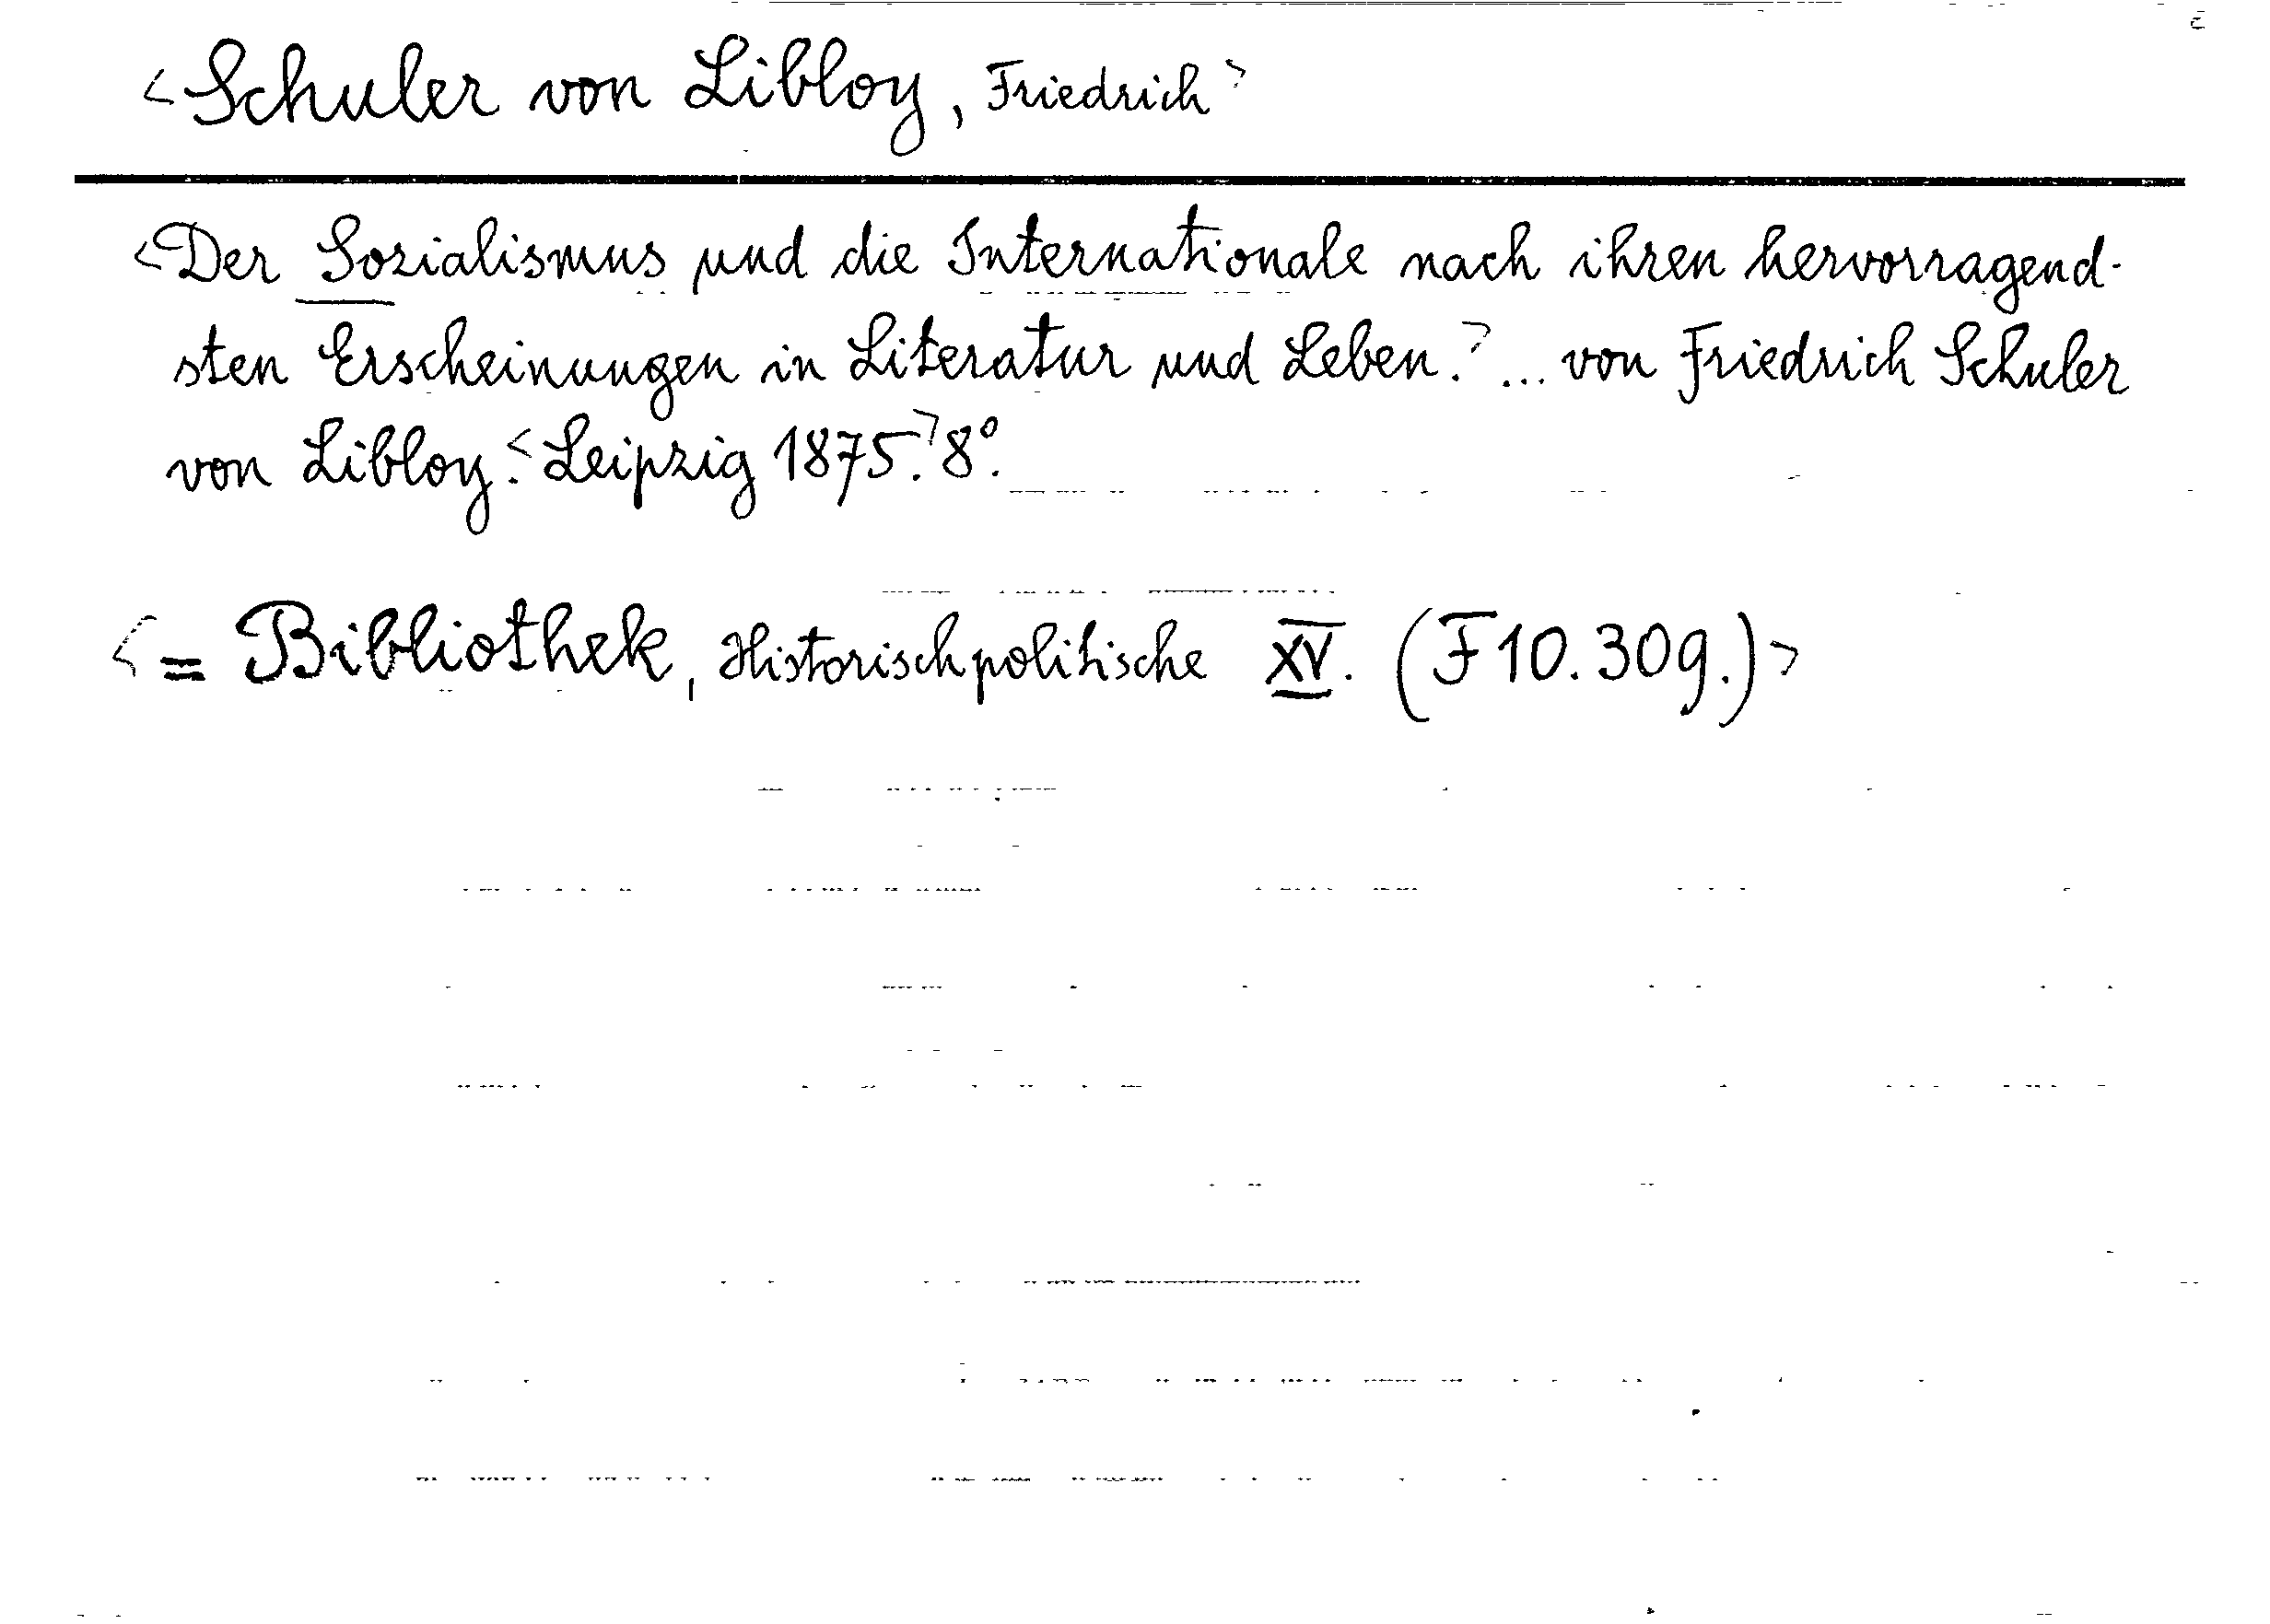 <Schuler von Libloy, Friedrich>
<Der Sozialismus und die Internationale nach ihren hervorragend-
sten Erscheinungen in Literatur und Leben.> ... von Friedrich Schuler
von Libloy. <Leipzig 1875.> 8°.
<= Bibliothek, Historischpolitische XV. (F 10. 30g.)>